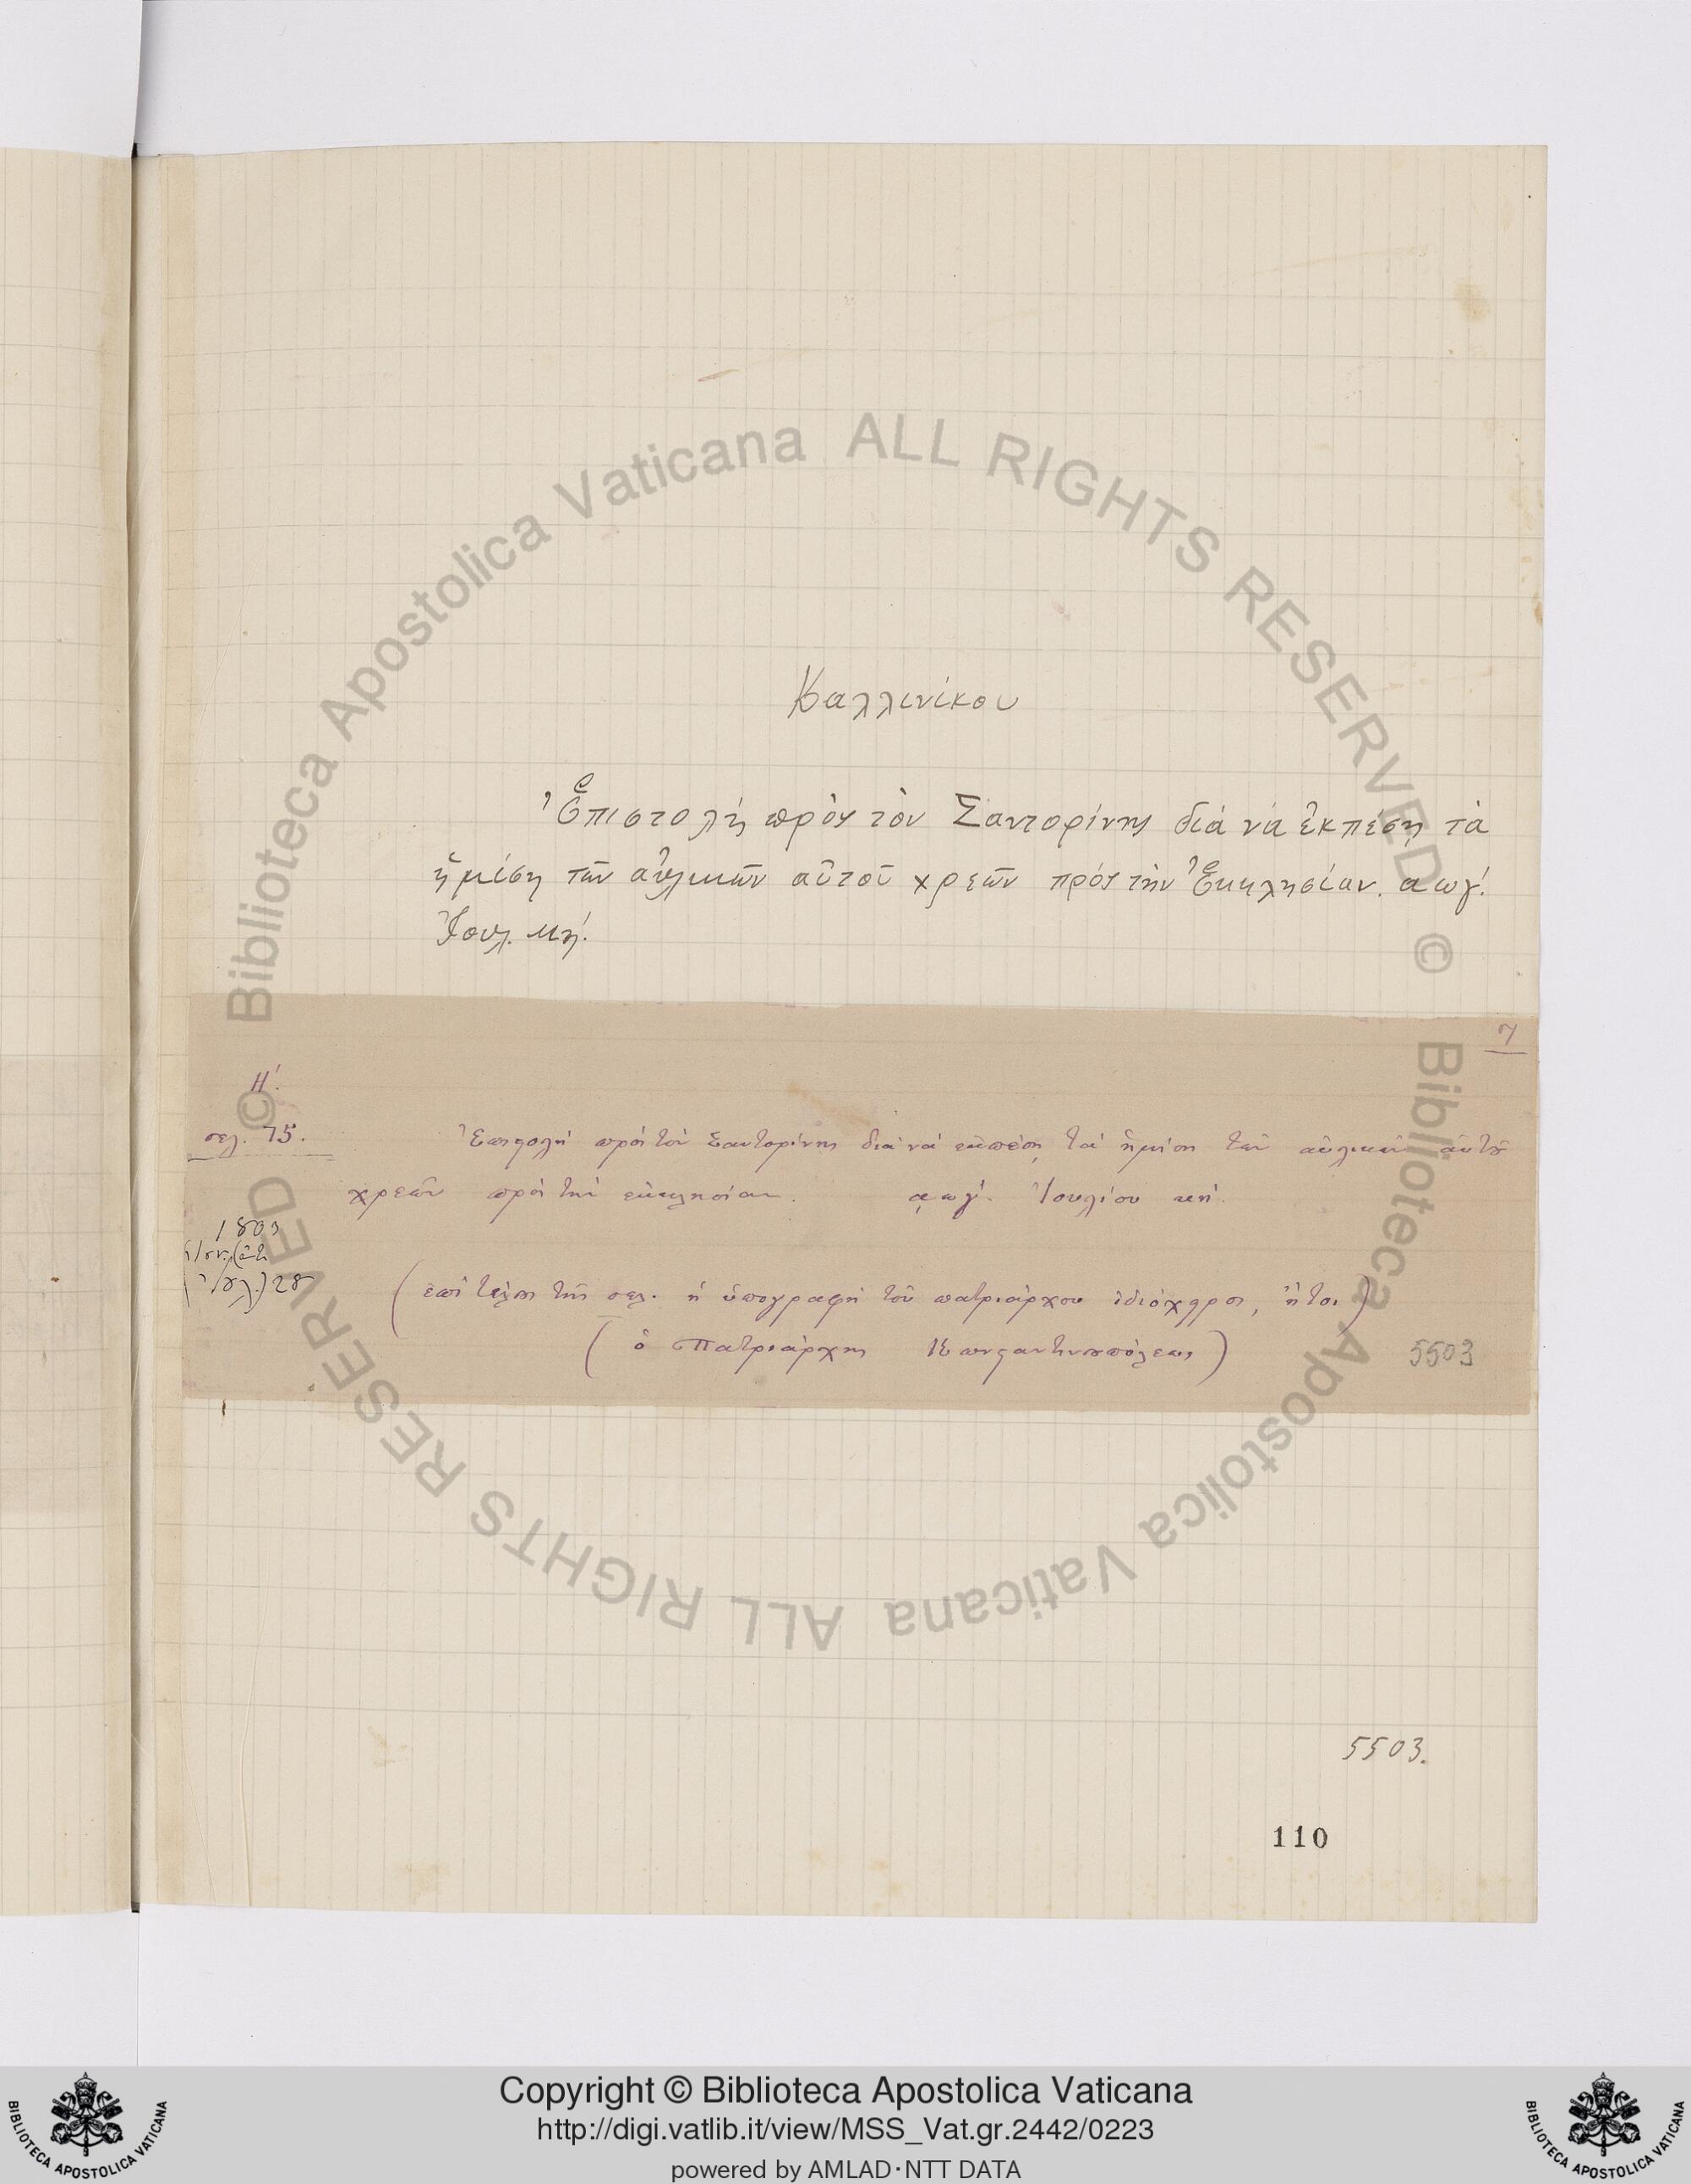 Καλλινίκου
Ἐπιστολὴ πρὸς τὸν Σαντορίνης διὰ νὰ ἐκπέσῃ τὰ
ἡμίση τῶν αὐλικῶν αὐτοῦ χρεῶν πρὸς τὴν Ἐκκλησίαν. αωγ΄.
Ἰουλ. κη΄.
7
Η΄.
σελ. 75.
Ἐπιστολὴ πρὸς τὸν Σαντορίνης διὰ νὰ ἐκπέσῃ τὰ ἡμίση τῶν αὐλικῶν αὐτοῦ
χρεῶν πρὸς τὴν ἐκκλησίαν. ͵αωγ΄. Ἰουλίου κη΄.
1803
Ἰουλ.) 28
(ἐπὶ τέλους τῆς σελ. ἡ ὑπογραφὴ τοῦ πατριάρχου ἰδιόχειρος, ἤτοι)
(ὁ Πατριάρχης Κωνσταντινουπόλεως)
5503
5503.
110
Biblioteca Apostolica Vaticana ALL RIGHTS RESERVED ©
Biblioteca Apostolica Vaticana ALL RIGHTS RESERVED ©
Copyright © Biblioteca Apostolica Vaticana
http://digi.vatlib.it/view/MSS_Vat.gr.2442/0223
powered by AMLAD·NTT DATA
BIBLIOTECA APOSTOLICA VATICANA
BIBLIOTECA APOSTOLICA VATICANA